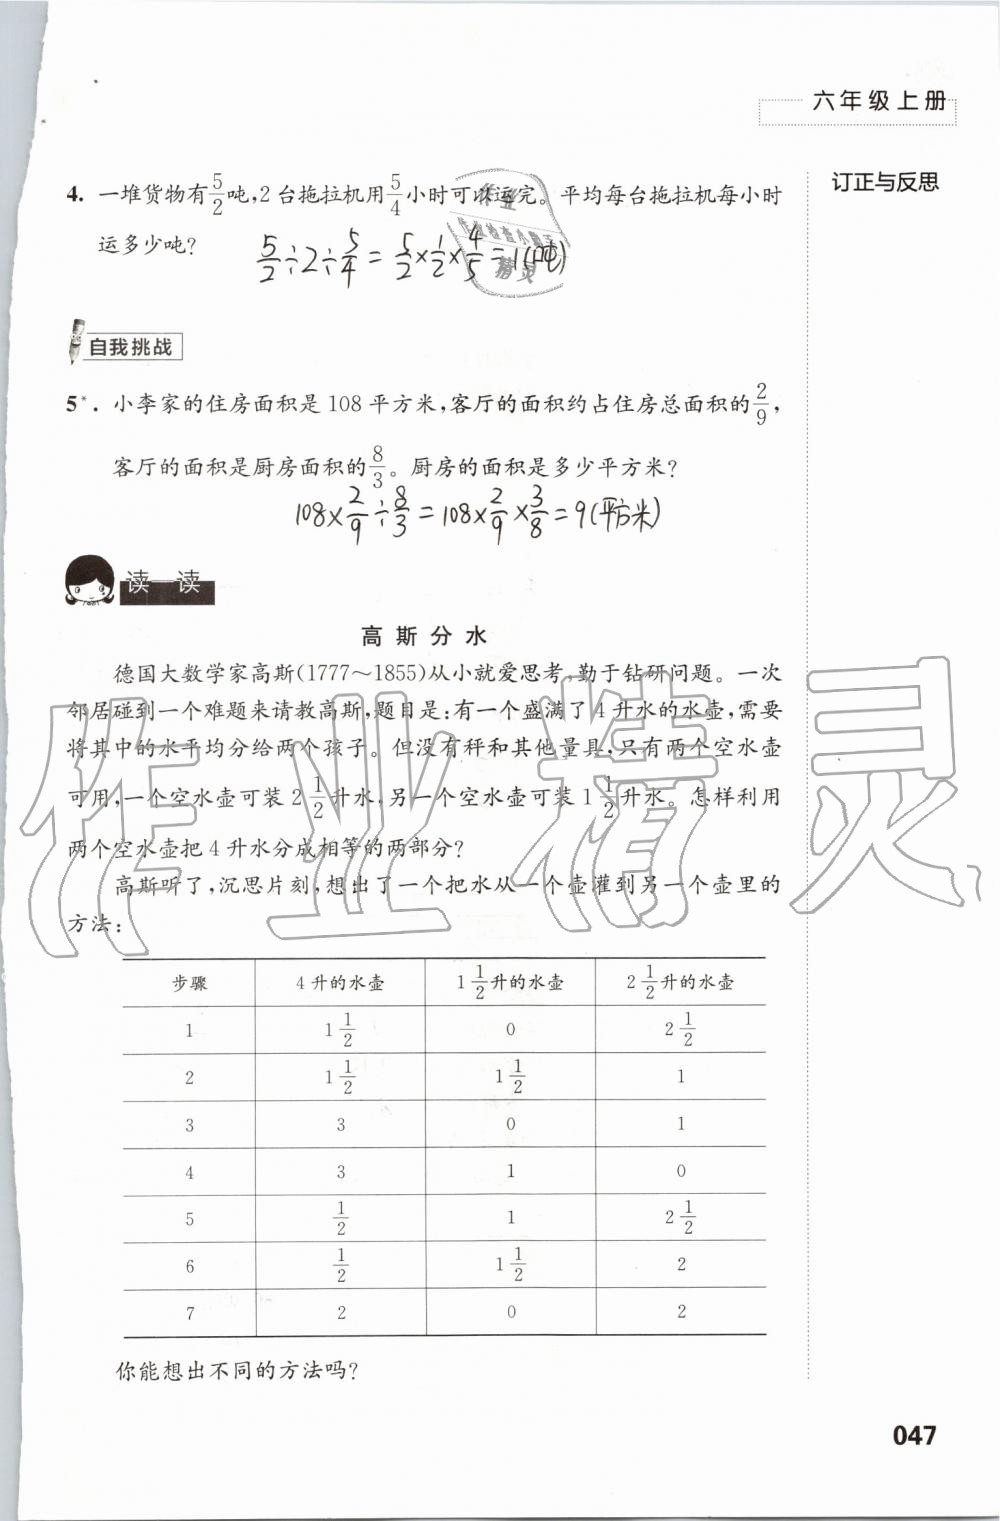 六年级上册
订正与反思
4. 一堆货物有5/2吨,2台拖拉机用5/4小时可以运完。平均每台拖拉机每小时
运多少吨?
5/2÷2÷5/4=5/2×1/2×4/5=1(吨)
自我挑战
5*. 小李家的住房面积是108平方米,客厅的面积约占住房总面积的2/9,
客厅的面积是厨房面积的8/3。厨房的面积是多少平方米?
108×2/9÷8/3=108×2/9×3/8=9(平方米)
读一读
高斯分水
德国大数学家高斯(1777～1855)从小就爱思考,勤于钻研问题。一次
邻居碰到一个难题来请教高斯,题目是:有一个盛满了4升水的水壶,需要
将其中的水平均分给两个孩子。但没有秤和其他量具,只有两个空水壶
可用,一个空水壶可装2 1/2升水,另一个空水壶可装1 1/2升水。怎样利用
两个空水壶把4升水分成相等的两部分?
高斯听了,沉思片刻,想出了一个把水从一个壶灌到另一个壶里的
方法:
步骤 4升的水壶 1 1/2升的水壶 2 1/2升的水壶
1 1 1/2 0 2 1/2
2 1 1/2 1 1/2 1
3 3 0 1
4 3 1 0
5 1/2 1 2 1/2
6 1/2 1 1/2 2
7 2 0 2
你能想出不同的方法吗?
047
作业精灵